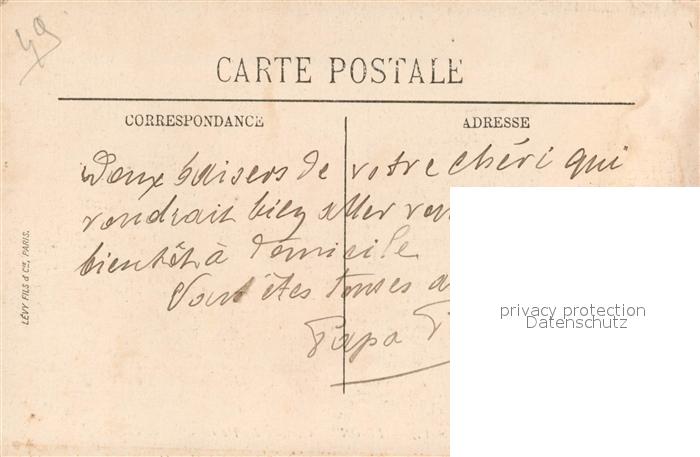 49
CARTE POSTALE
CORRESPONDANCE
ADRESSE
Doux baisers de votre chéri qui
voudrait bien aller
bientôt à domicile
Vous êtes toutes
Papa
LÉVY FILS & Cie, PARIS.
privacy protection
Datenschutz